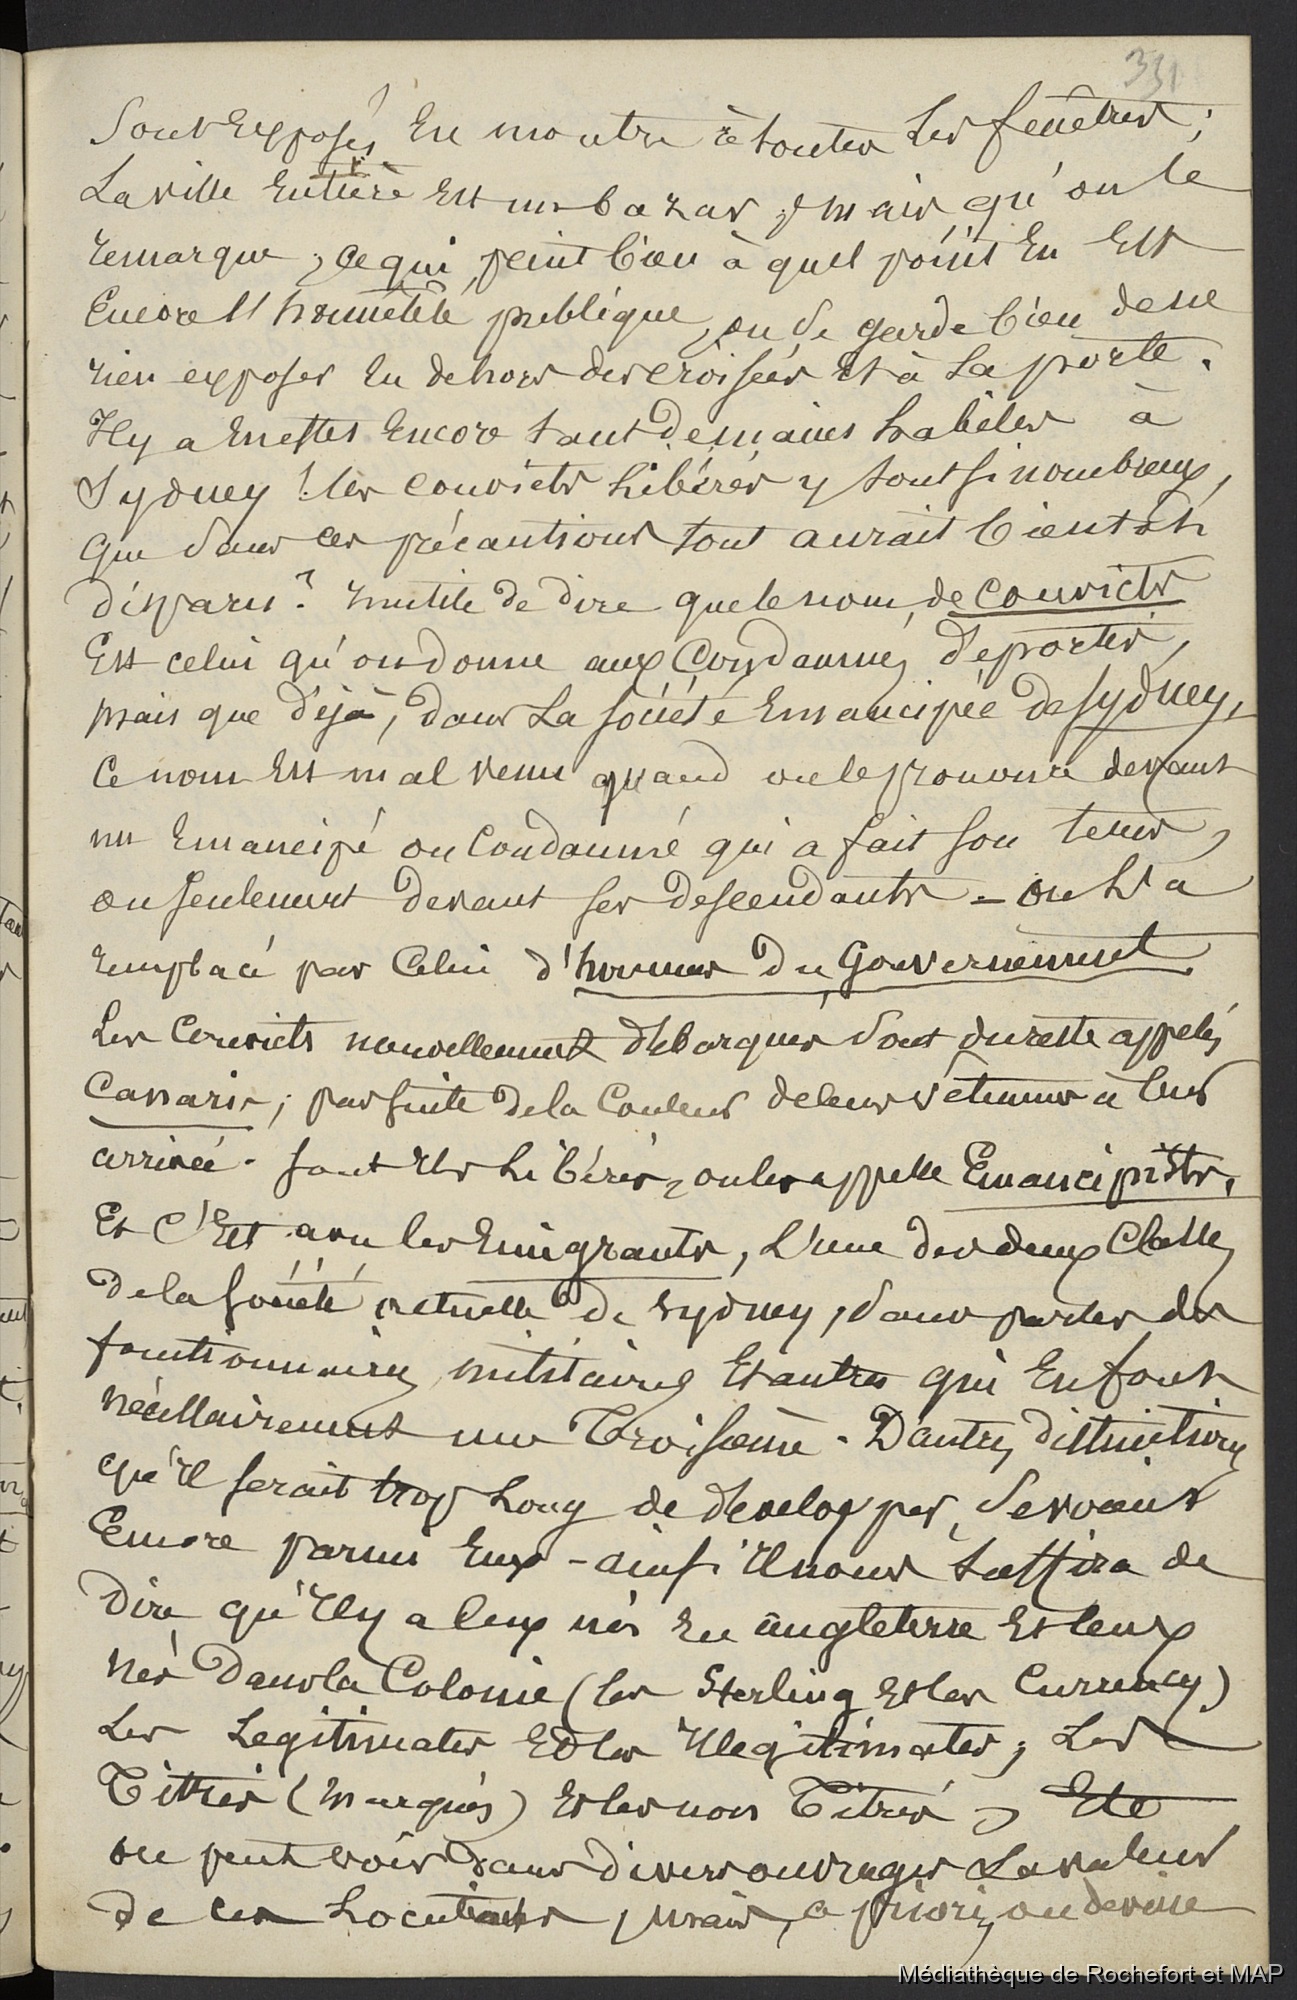 331
Sont exposés en montre à toutes les fenêtres ;
La ville Entière Est un bazar ; mais, qu'on le
remarque, ce qui peint bien à quel point En Est
Encore l'honnêteté publique, on se garde bien de ne
rien exposer En dehors des croisées Et à La porte.
Il y a En effet Encore tant de mains habiles à
Sydney ! les convicts libérés y sont si nombreux,
que sans ces précautions tout aurait bientôt
disparu ? inutile de dire que le nom de convicts
Est celui qu'on donne aux Condamnés déportés,
mais que déjà, dans La société Emancipée de Sydney,
Ce nom Est mal venu quand on le prononce devant
un Emancipé ou Condamné qui a fait son tems,
ou seulement devant ses descendants - on l'a
remplacé par Celui d'hommes du Gouvernement
Les Convicts nouvellement débarqués sont du reste appelés
Canaris ; par suite de la Couleur de leurs vêtemens à leur
arrivée. sont Ils Libérés, on les appelle Emancipists,
Et C'Est avec les Emigrants, L'une des deux Classes
de la société actuelle de Sydney, sans parler des
fonctionnaires, militaires Et autres qui En font
nécessairement une Troisième - D'autres distinctions
qu'Il serait trop Long de développer, servant
Encore parmi Eux - ainsi Il nous suffira de
Dire qu'Il y a Ceux nés En angleterre Et Ceux
nés Dans la Colonie (les Sterling Et les Currency)
Les Legitimates Et les Illegitimates ; Les
Titrés (marqués) Et les non Titrés, Etc
on peut voir dans divers ouvrages La valeur
de ces Locutions, mais, a priori, on devine
Médiathèque de Rochefort et MAP